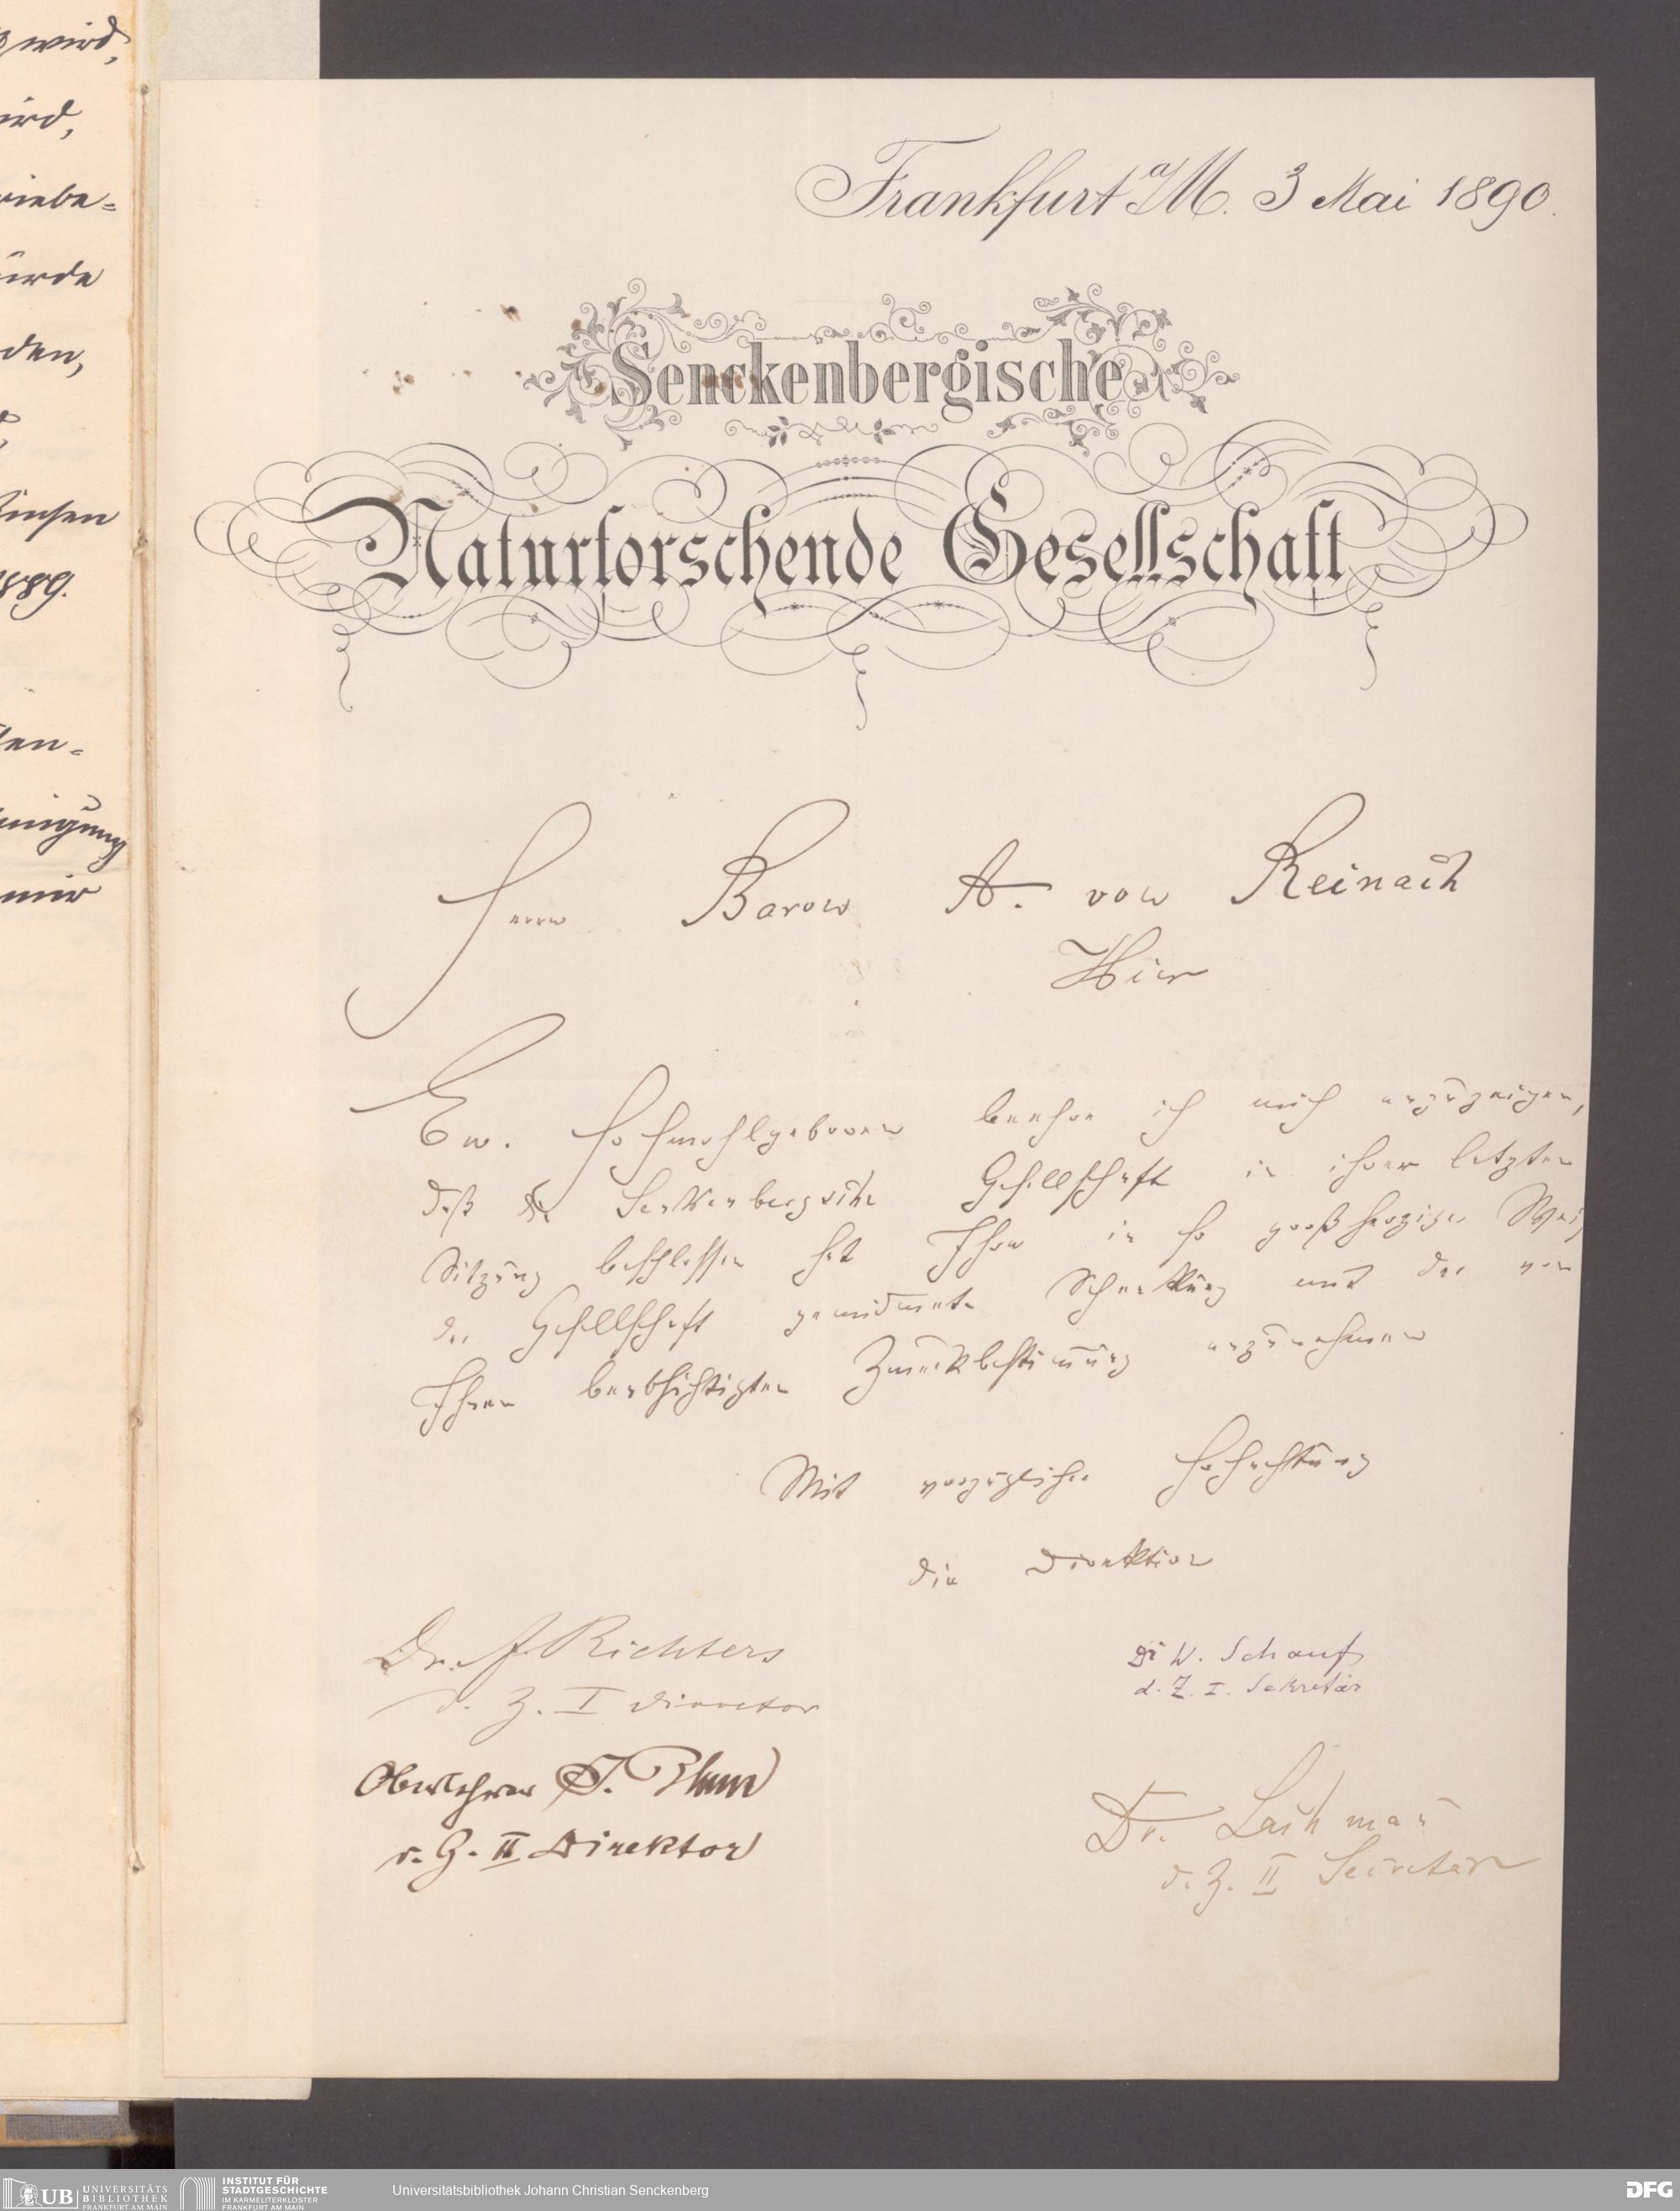 wird,
ird,
riebe-
ürde
den,
insen
1889.
ten-
inigung
mir
Frankfurt a/M. 3 Mai 1890.
Senckenbergische
Naturforschende Gesellschaft
Herrn Baron A. von Reinach
Hier
Ew. Hochwohlgeboren beehre ich mich anzuzeigen,
daß die Senkenbergische Gesellschaft in ihrer letzten
Sitzung beschlossen hat Ihre in so großherziger Weise
der Gesellschaft gewidmete Schenkung mit der von
Ihnen beabsichtigten Zweckbestimmung anzunehmen
Mit vorzüglicher Hochachtung
die Direktion
Dr. F. Richters
d. Z. I Director
Dr W. Schauf
d. Z. I. Sekretär
Oberlehrer J. Blum
d. Z. II Direktor
Dr. Lachman̄
d. Z. II Secretär
UB UNIVERSITÄTS
BIBLIOTHEK
FRANKFURT AM MAIN
INSTITUT FÜR
STADTGESCHICHTE
IM KARMELITERKLOSTER
FRANKFURT AM MAIN
Universitätsbibliothek Johann Christian Senckenberg
DFG